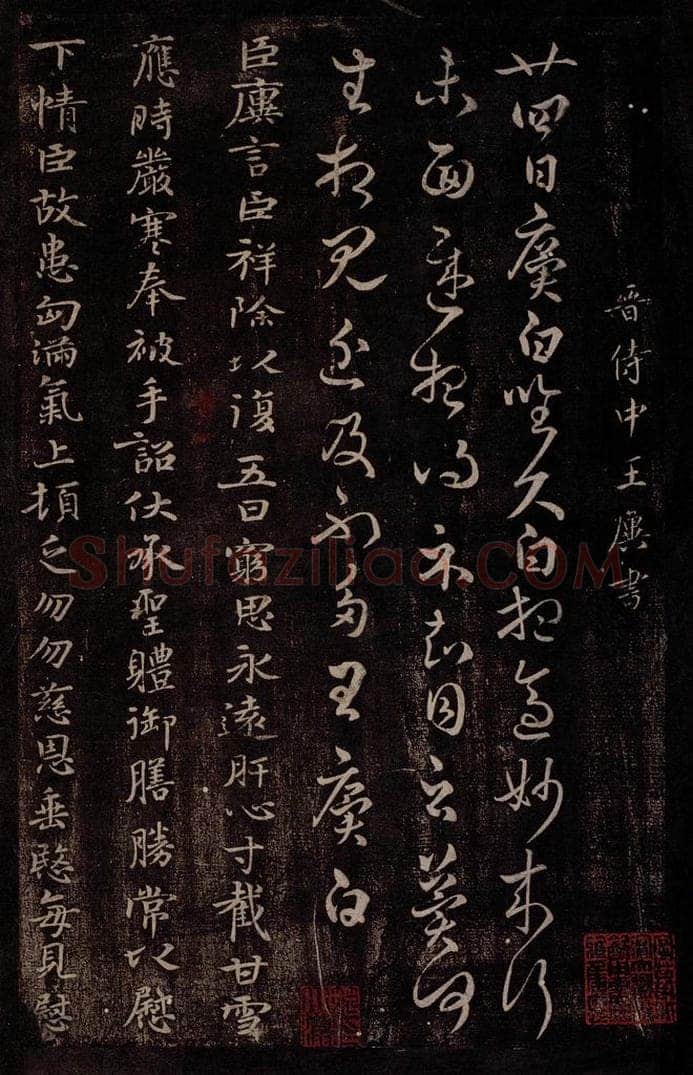 晉侍中王廙書
廿四日廙白昨久白想適妙
未面遲想
相見近及不多王廙白
臣廙言臣祥除以復五日窮思永遠肝心寸截甘雪
應時嚴寒奉被手詔伏承聖體御膳勝常以慰
下情臣故患匈滿氣上頓乏勿勿慈恩垂愍每見慰
Shufaziliao.COM